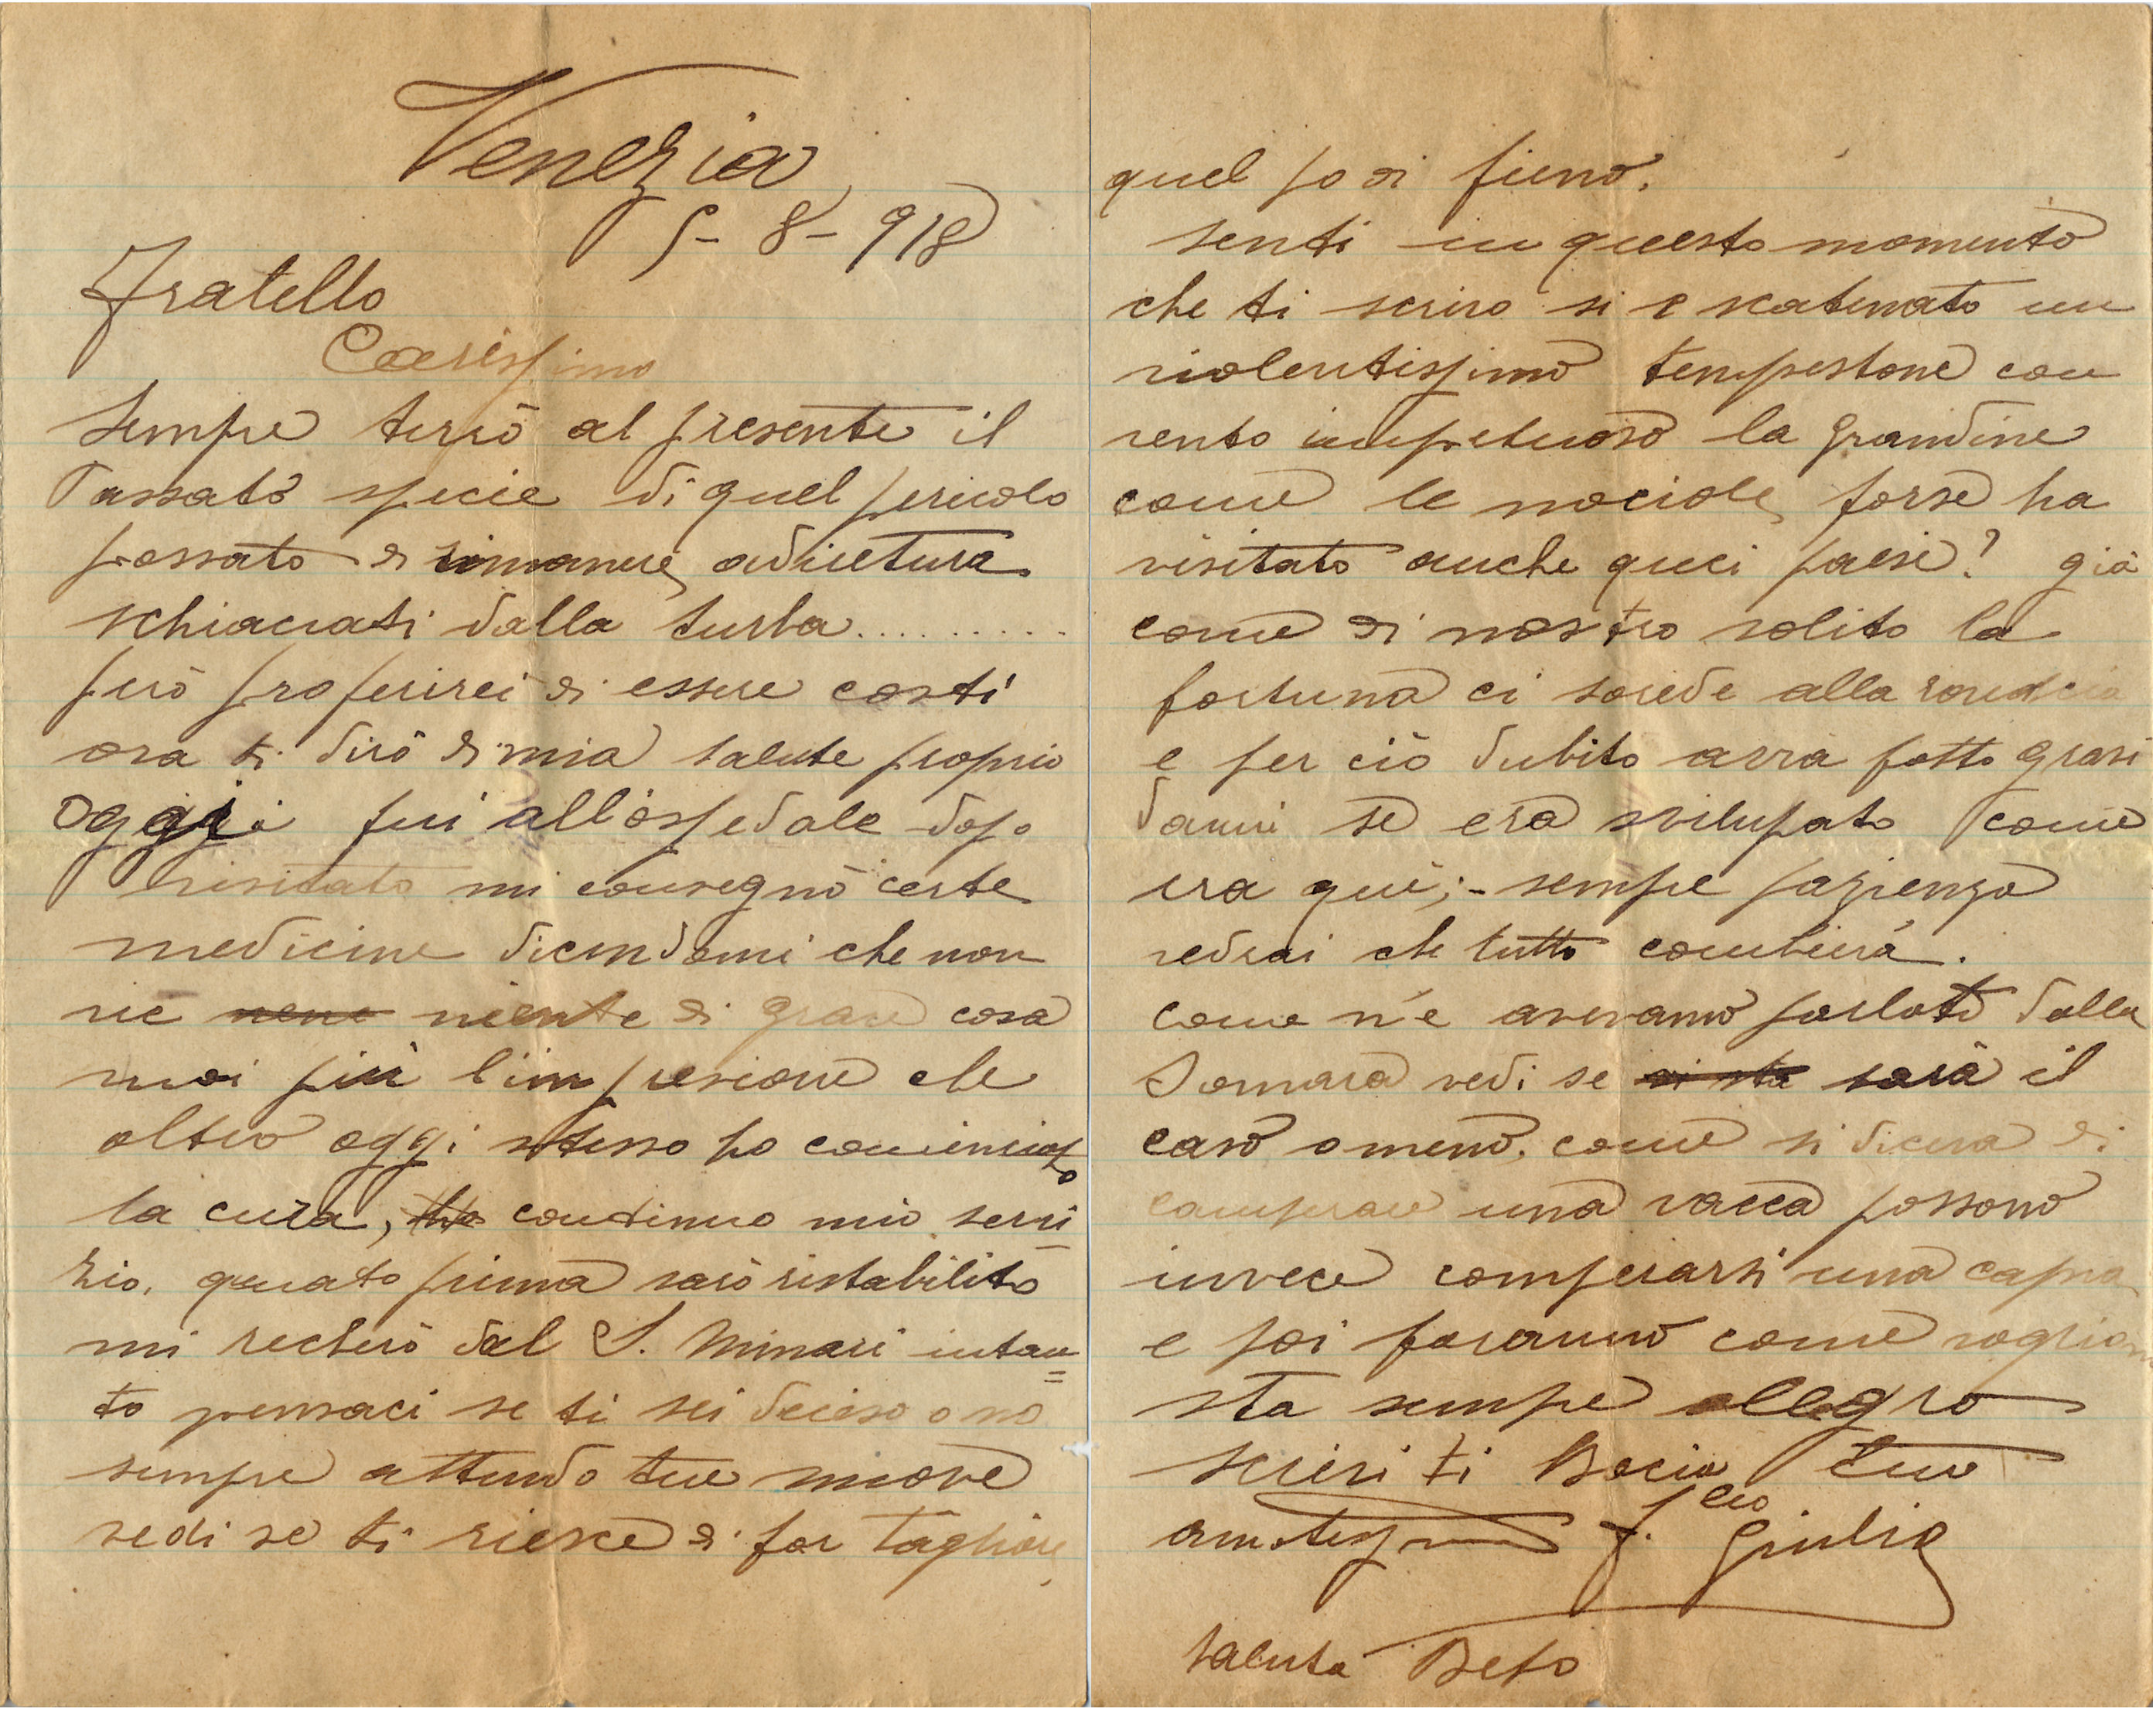 Venezia
5-8-918
Fratello
Carissimo
Sempre terrò al presente il
Passato specie di quel pericolo
passato di rimanere adiretura
schiacciati dalla turba..........
però proferirei di essere costì
ora ti dirò di mia salute proprio
oggi fui all'ospedale dopo
visitato mi consegnò certe
medicine dicendomi che non
vie niente di grave cosa
mai più l'impresione che
altro oggi stesso ho cominciato
la cura, continuo mio servi
zio. quato prima sarò ristabilito
mi recherò dal S. Minari intan=
to pensaci se ti sei deciso o no
sempre attendo tue nuove
vedi se ti riesce di far tagliare
quel po di fieno.
senti in questo momento
che ti scrivo si è scatenato un
violentissimo tempestone con
vento impetuoso la grandine
come le nociole, forse ha
visitato anche quei paesi? già
come di nostro solito la
fortuna ci soride alla
e per ciò dubito avrà fatto gravi
danni se era svilupato come
era qui;- sempre pazienza
vedrai che tutto combierà.
come n'è avevamo parlato dalla
Somara vedi se sarà il
caso o meno. come si diceva di
comperare una vacca possono
invece comperarsi una capra
e poi faranno come vogliono
sta sempre allegro
scrivi ti Bacia tuo
amatissimo f.llo Giulio
saluta Bepo